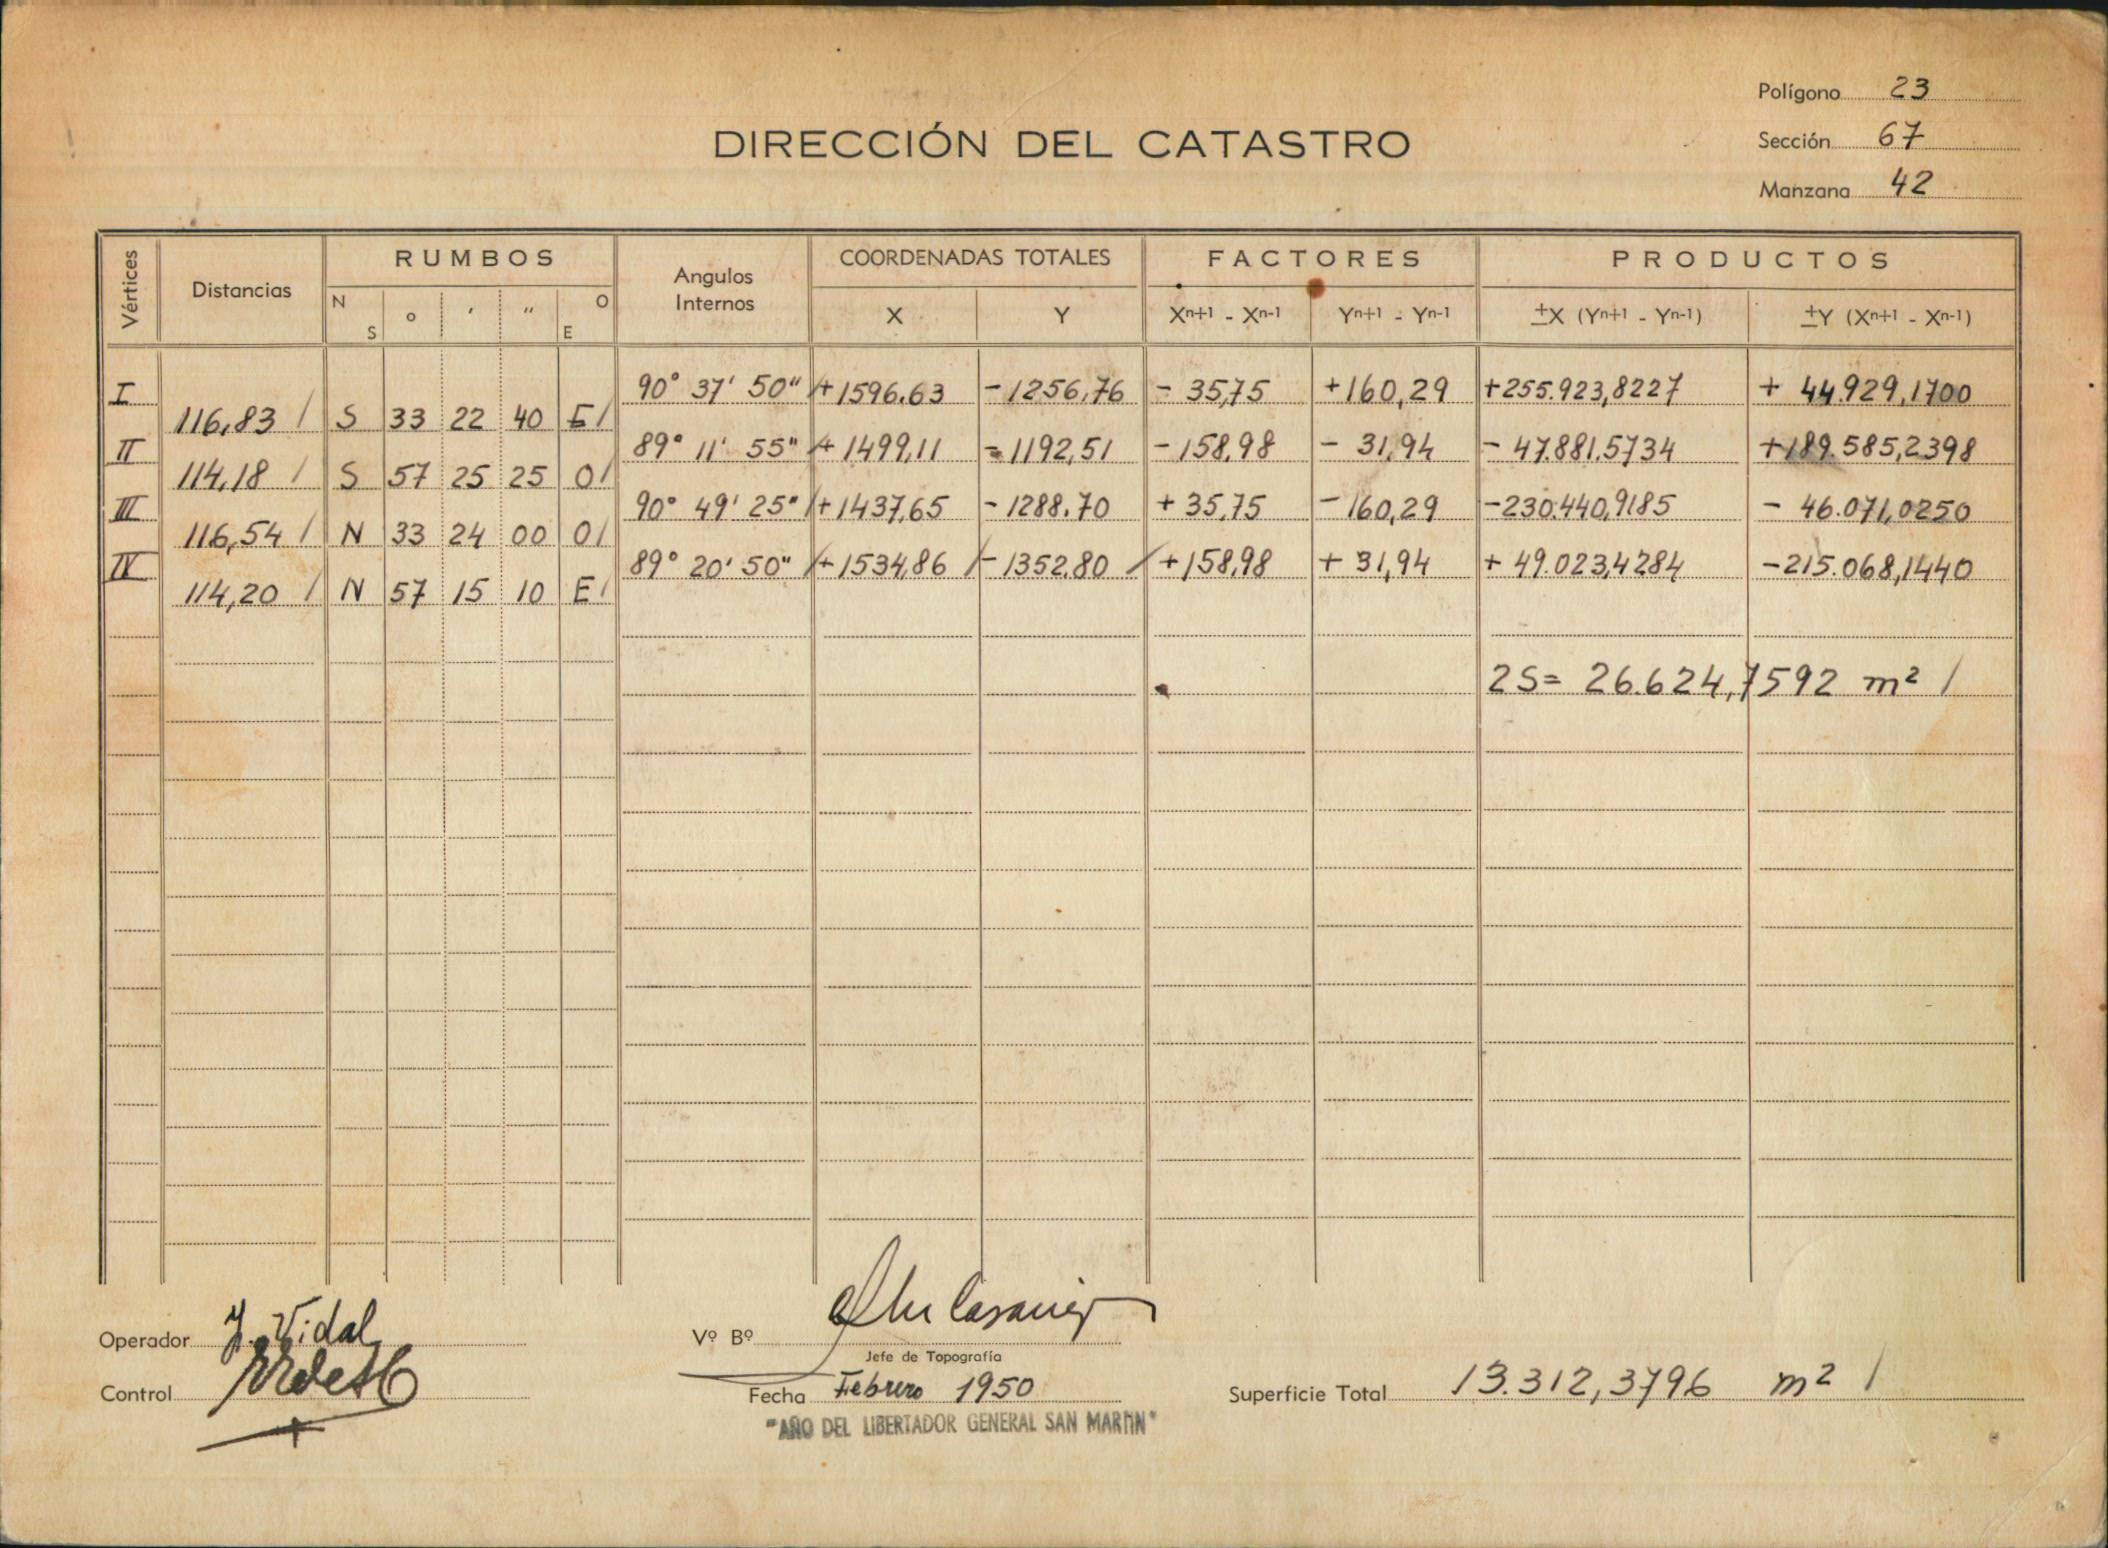 Polígono 23
DIRECCIÓN DEL CATASTRO
Sección 67
Manzana 42
Vértices Distancias RUMBOS Angulos Internos COORDENADAS TOTALES FACTORES PRODUCTOS
N S ° ' " O E X Y Xn+1 - Xn-1 Yn+1 - Yn-1 ±X (Yn+1 - Yn-1) ±Y (Xn+1 - Xn-1)
I 90° 37' 50" +1596,63 -1256,76 - 35,75 +160,29 +255.923,8227 + 44.929,1700
116,83 / S 33 22 40 E/
II 89° 11' 55" + 1499,11 -1192,51 -158,98 - 31,94 - 47.881,5734 +189.585,2398
114,18 / S 57 25 25 O/
III 90° 49' 25" /+1437,65 -1288.70 + 35,75 -160,29 -230.440,9185 - 46.071,0250
116,54 / N 33 24 00 O/
IV 89° 20' 50" /+1534,86 /-1352.80 /+158,98 + 31,94 + 49.023,4284 -215.068,1440
114,20 / N 57 15 10 E/
2S= 26.624,7592 m² /
Operador J. Vidal
Vº Bº
Jefe de Topografía
Control
Fecha Febrero 1950
Superficie Total 13.312,3796 m² /
"AÑO DEL LIBERTADOR GENERAL SAN MARTIN"